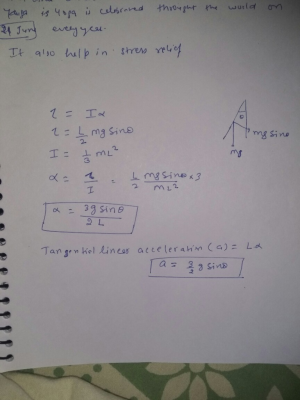 is celebrated throughout the world on
21 June every year.
It also help in stress relief
τ = Iα
τ = L/2 mg sinθ
I = 1/3 mL²
α = τ/I = L/2 mg sinθ × 3 / mL²
α = 3g sinθ / 2L
θ
mg sinθ
mg
Tangential linear acceleration (a) = Lα
a = 3/2 g sinθ